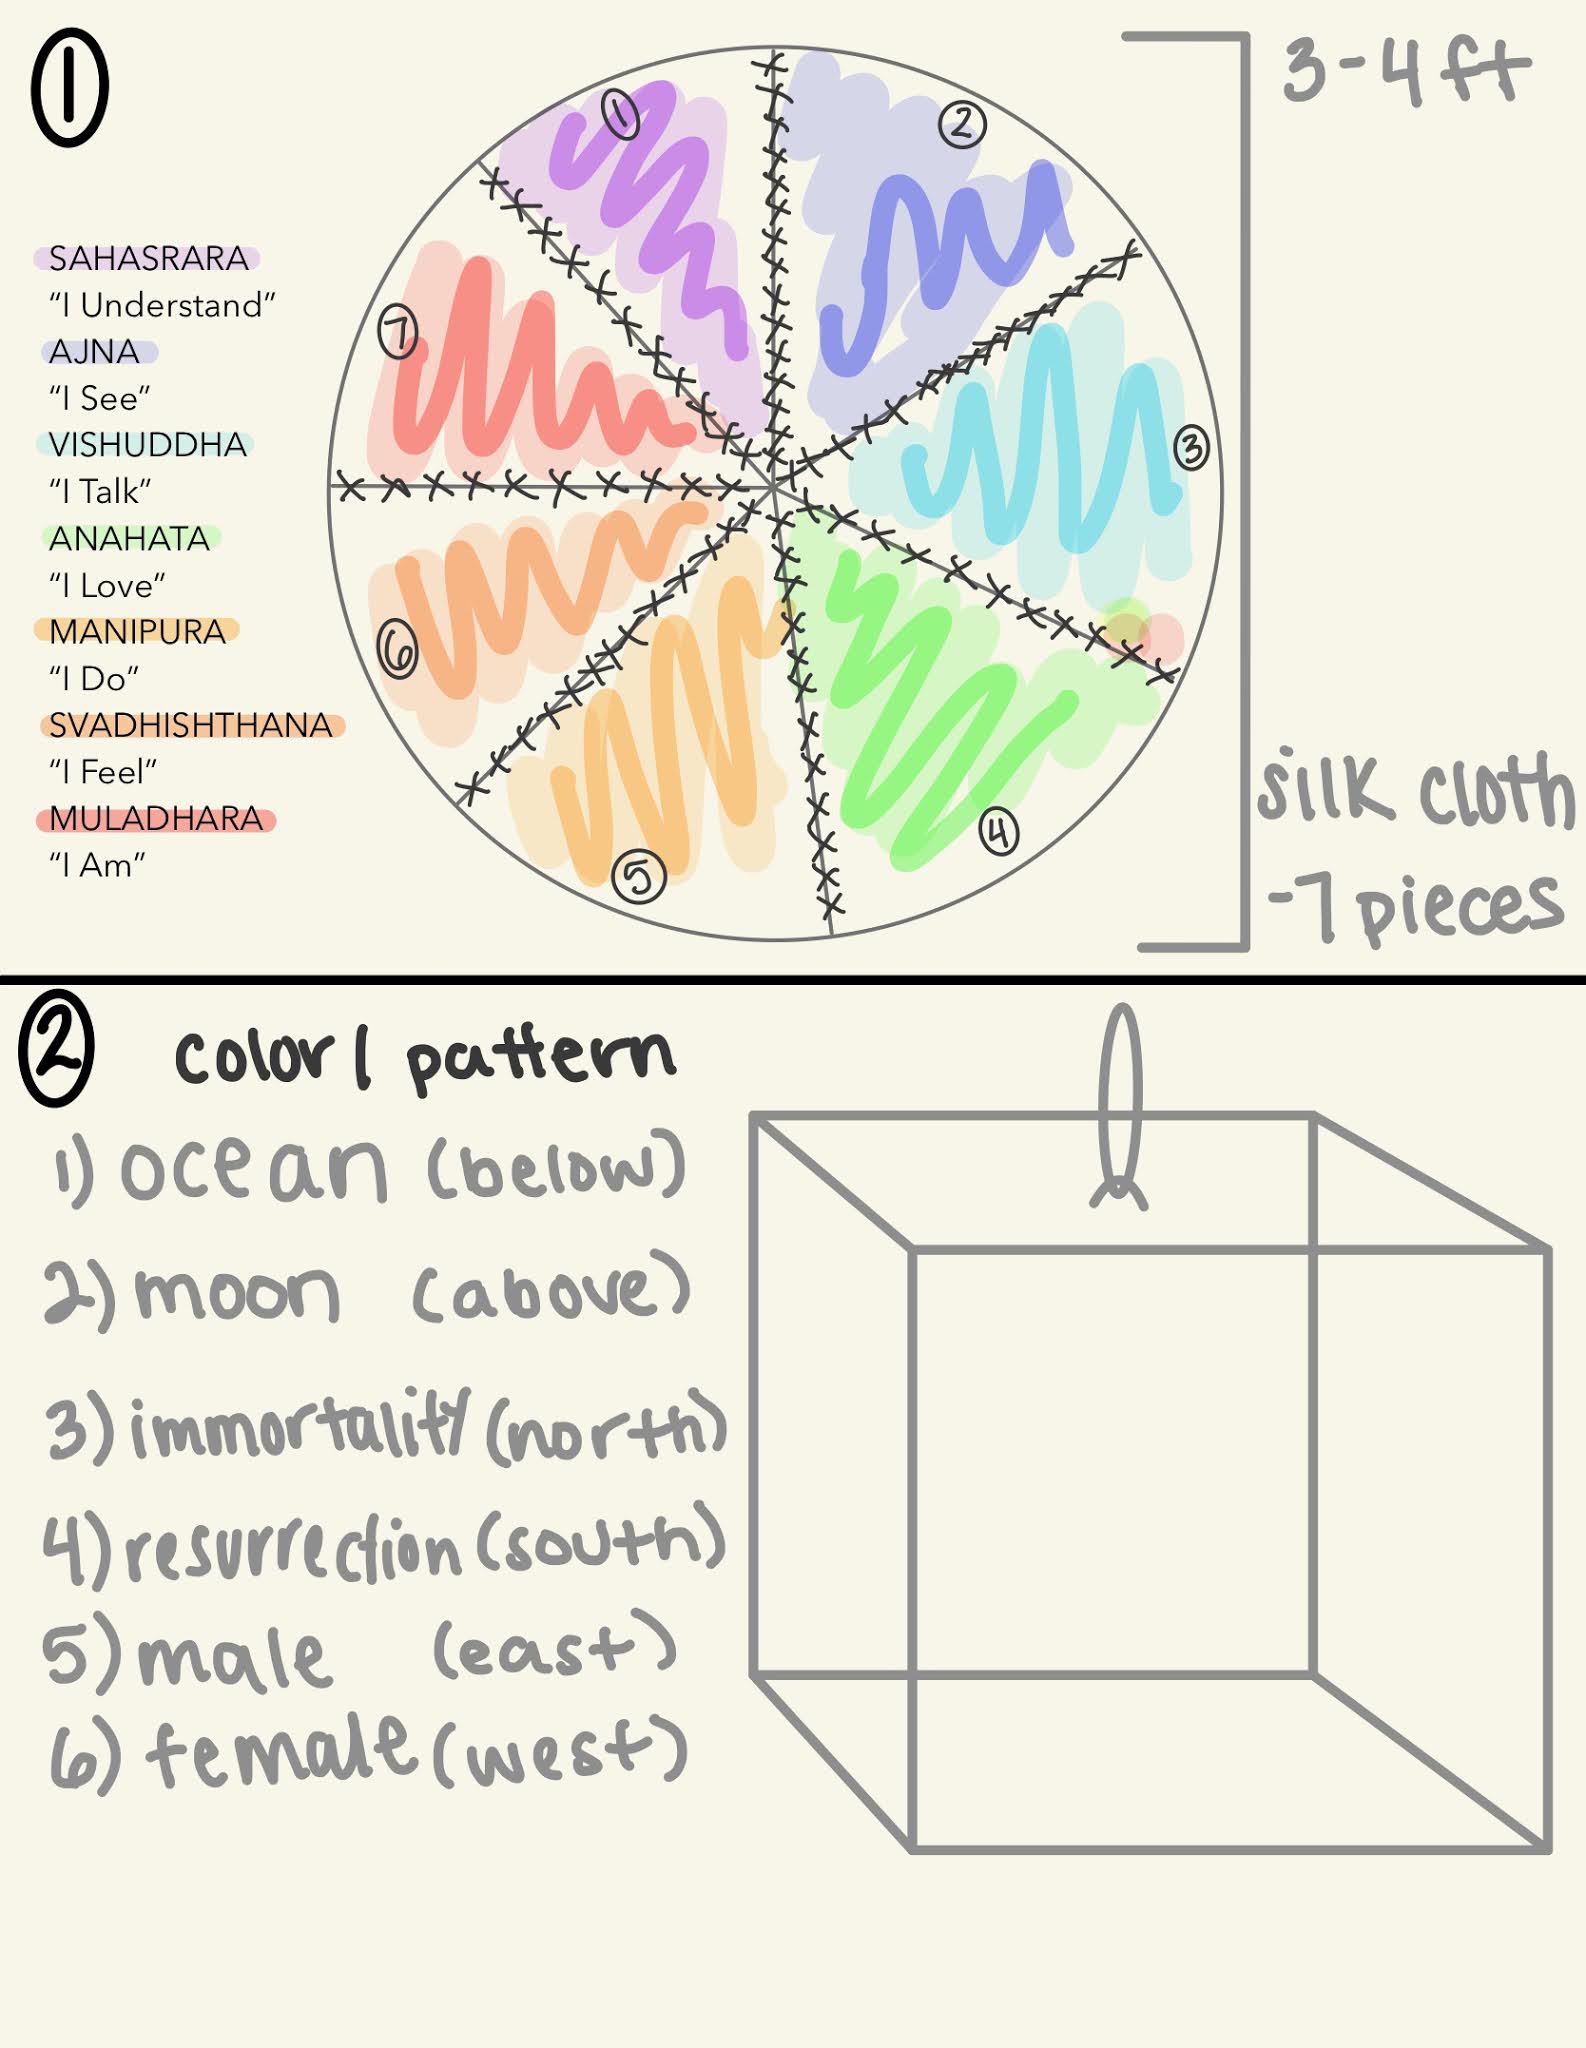 1
3-4 ft
1
2
SAHASRARA
"I Understand"
7
AJNA
"I See"
VISHUDDHA
3
"I Talk"
ANAHATA
"I Love"
MANIPURA
6
"I Do"
SVADHISHTHANA
"I Feel"
silk cloth
MULADHARA
4
"I Am"
5
-7 pieces
2
color | pattern
1) ocean (below)
2) moon (above)
3) immortality (north)
4) resurrection (south)
5) male (east)
6) female (west)